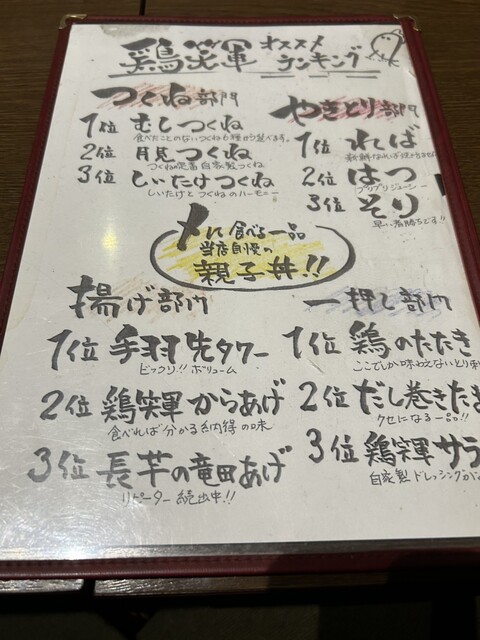 鶏笑軍 オススメ
ランキング
つくね部門
1位 むしつくね
食べたことのないつくね6種から選べます。
2位 月見つくね
つくね定番自家製つくね
3位 しいたけつくね
しいたけとつくねのハーモニー
やきとり部門
1位 ればー
2位 はつ
プリプリジューシー
3位 そり
早い者勝ちです!!
〆に食べる一品
当店自慢の
親子丼!!
揚げ部門
1位 手羽先タワー
ビックリ!!ボリューム
2位 鶏笑軍からあげ
食べれば分かる納得の味
3位 長芋の竜田あげ
リピーター続出中!!
一押し部門
1位 鶏のたたき
ここでしか味わえないとり刺
2位 だし巻きたま
クセになる一品!!
3位 鶏笑軍サラ
自家製ドレッシングが